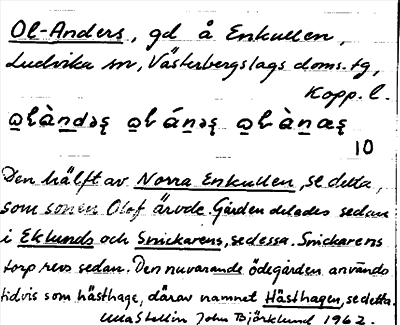 Ol-Anders, gd å Enkullen,
Ludvika sn, Västerbergslags doms. tg,
Kopp. l.
10
Den hälft av Norra Enkullen, se detta,
som sonen Olof ärvde. Gården delades sedan
i Eklunds och Snickarens, se dessa. Snickarens
torp revs sedan. Den nuvarande ödegården används
tidvis som hästhage, därav namnet Hästhagen, se detta.
John Björklund 1962.